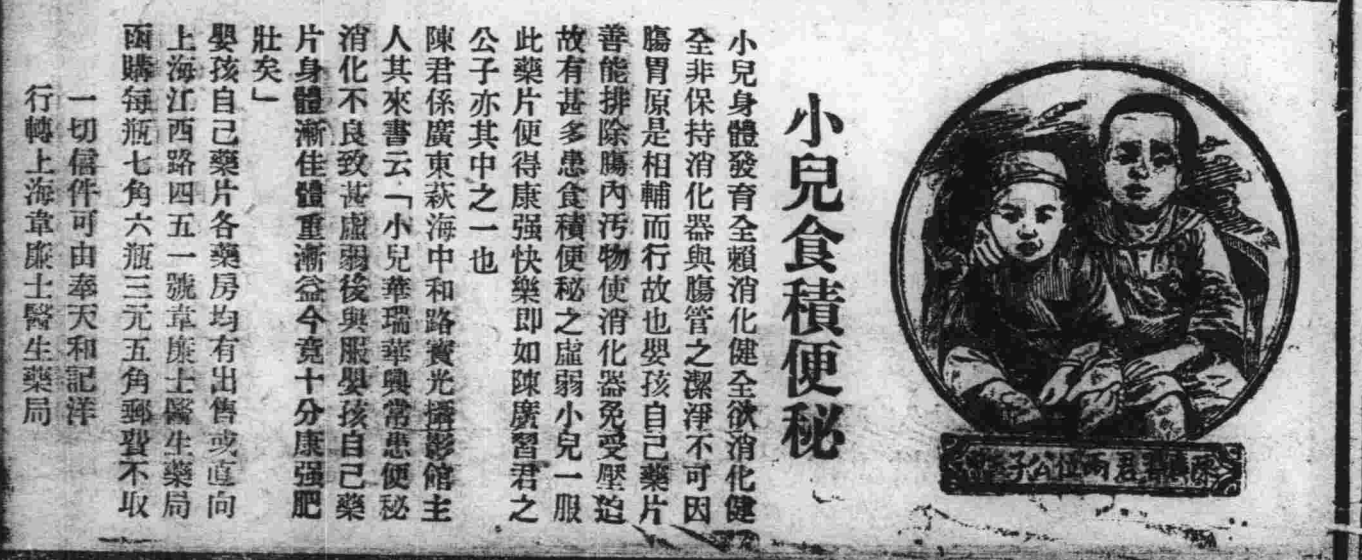 陳廣習君兩位公子玉照
小兒食積便秘
小兒身體發育全賴消化健全欲消化健
全非保持消化器與腸管之潔淨不可因
腸胃原是相輔而行故也嬰孩自己藥片
善能排除腸內污物使消化器免受壓迫
故有甚多患食積便秘之虛弱小兒一服
此藥片便得康强快樂即如陳廣習君之
公子亦其中之一也
陳君係廣東萩海中和路寶光攝影館主
人其來書云「小兒華瑞華興常患便秘
消化不良致甚虛弱後與服嬰孩自己藥
片身體漸佳體重漸益今竟十分康强肥
壯矣」
嬰孩自己藥片各藥房均有出售或直向
上海江西路四五一號韋廉士醫生藥局
函購每瓶七角六瓶三元五角郵費不取
一切信件可由奉天和記洋
行轉上海韋廉士醫生藥局